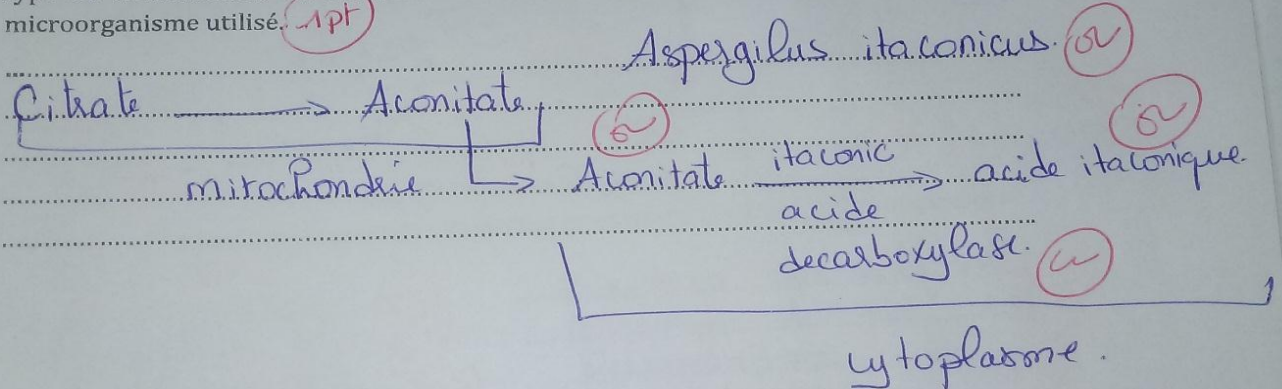 microorganisme utilisé. 1pt
Aspergilus itaconicus.
Citrate → Aconitate
mitochondrie → Aconitate itaconic → acide itaconique.
acide
decarboxylase.
cytoplasme.